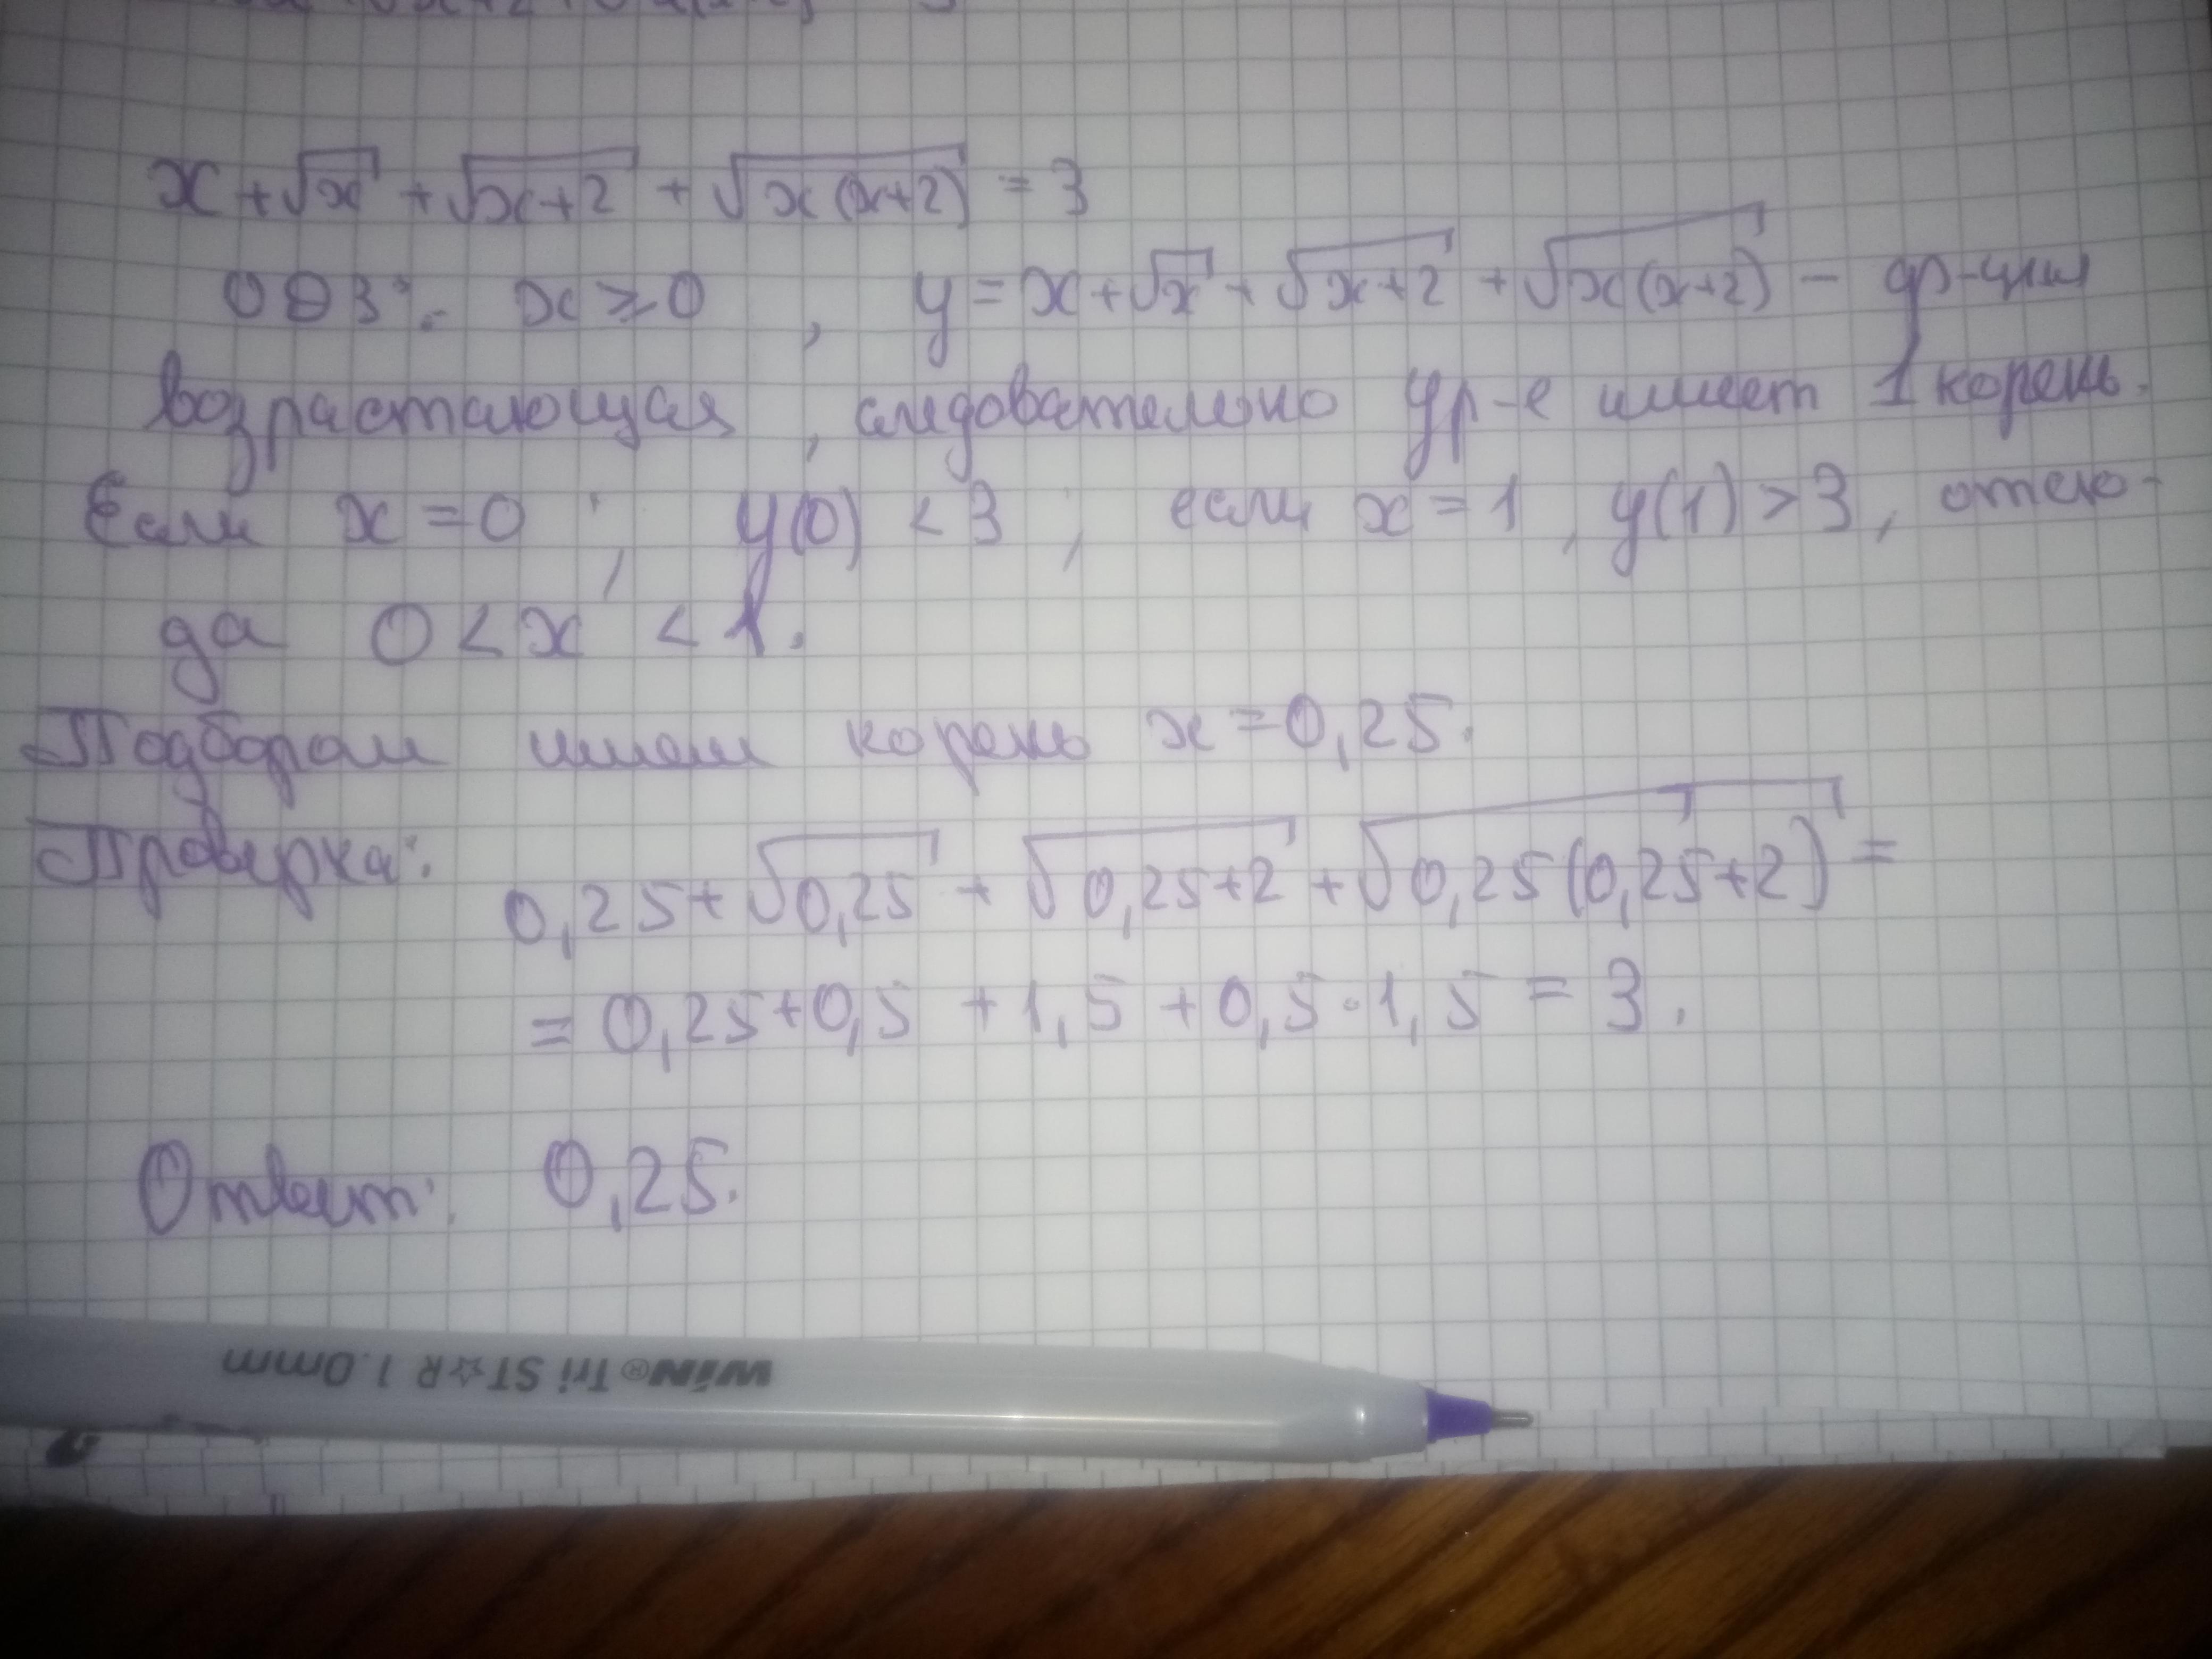 x + √x + √x+2 + √x(x+2) = 3
ОДЗ: x ≥ 0 , y = x + √x + √x+2 + √x(x+2) – ф-ция
возрастающая, следовательно ур-е имеет 1 корень.
Если x = 0 ; y(0) < 3 ; если x = 1 , y(1) > 3 , отсю-
да 0 < x < 1.
Подбором имеем корень x = 0,25.
Проверка:
0,25 + √0,25 + √0,25+2 + √0,25(0,25+2) =
= 0,25 + 0,5 + 1,5 + 0,5 · 1,5 = 3 .
Ответ: 0,25.
WIN® Tri ST☆R 1.0mm